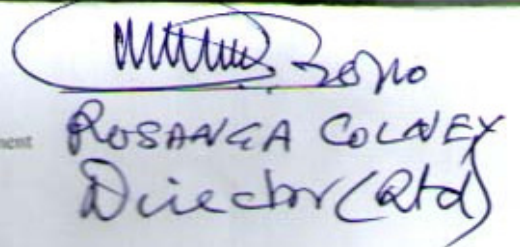 ment ROSANGA COLNEY
Director (Rtd)